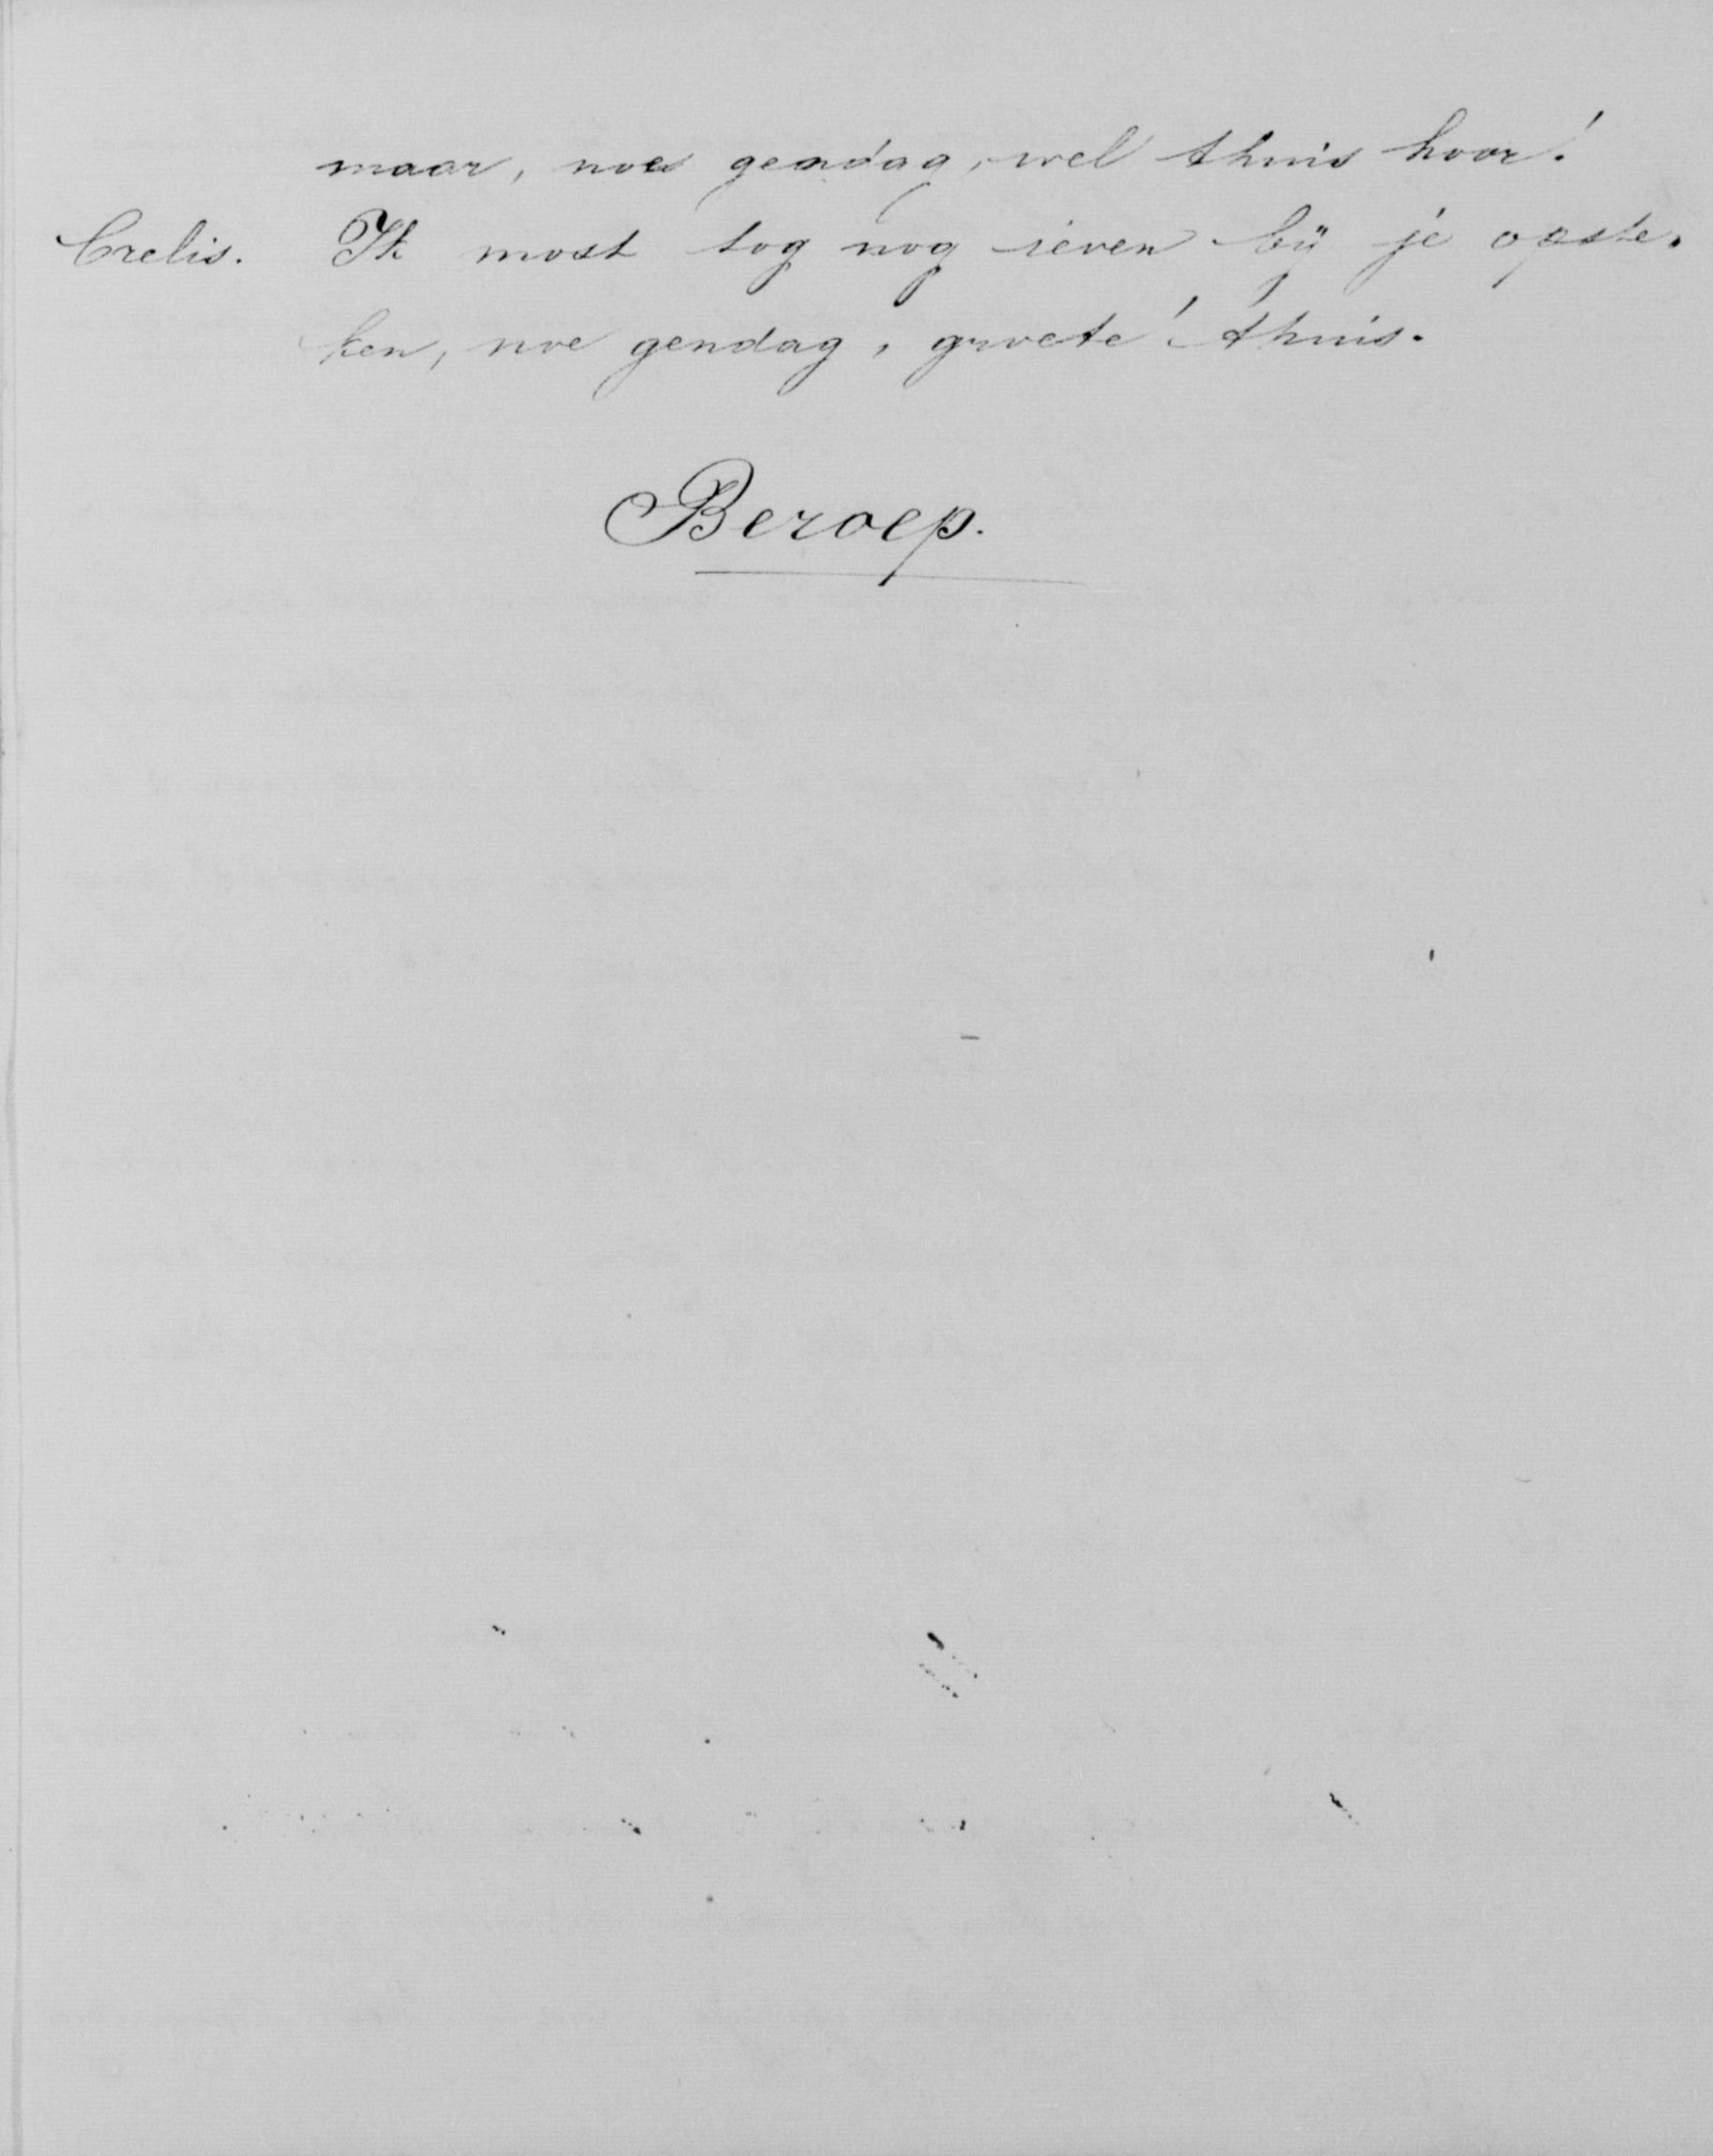 maar, noe gendag, wel thuis hoor!
Crelis. Ik most tog nog ieven bij je opste-
ken, noe gendag, groete! thuis.
Beroep.